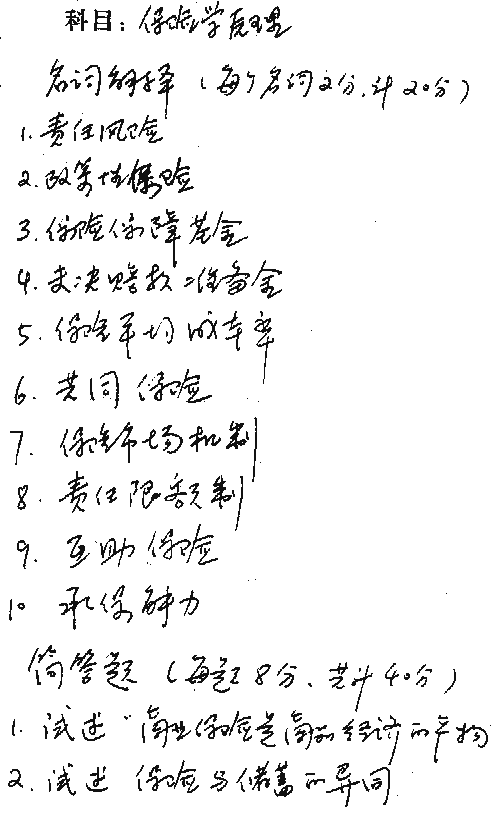 科目：保险学原理
名词解释（每个名词2分，计20分）
1.责任风险
2.政策性保险
3.保险保障基金
4.未决赔款准备金
5.保额平均损失率
6.共同保险
7.保险市场机制
8.责任限额制
9.互助保险
10 承保能力
简答题（每题8分、共计40分）
1.试述“商业保险是商品经济的产物
2.试述 保险与储蓄的异同